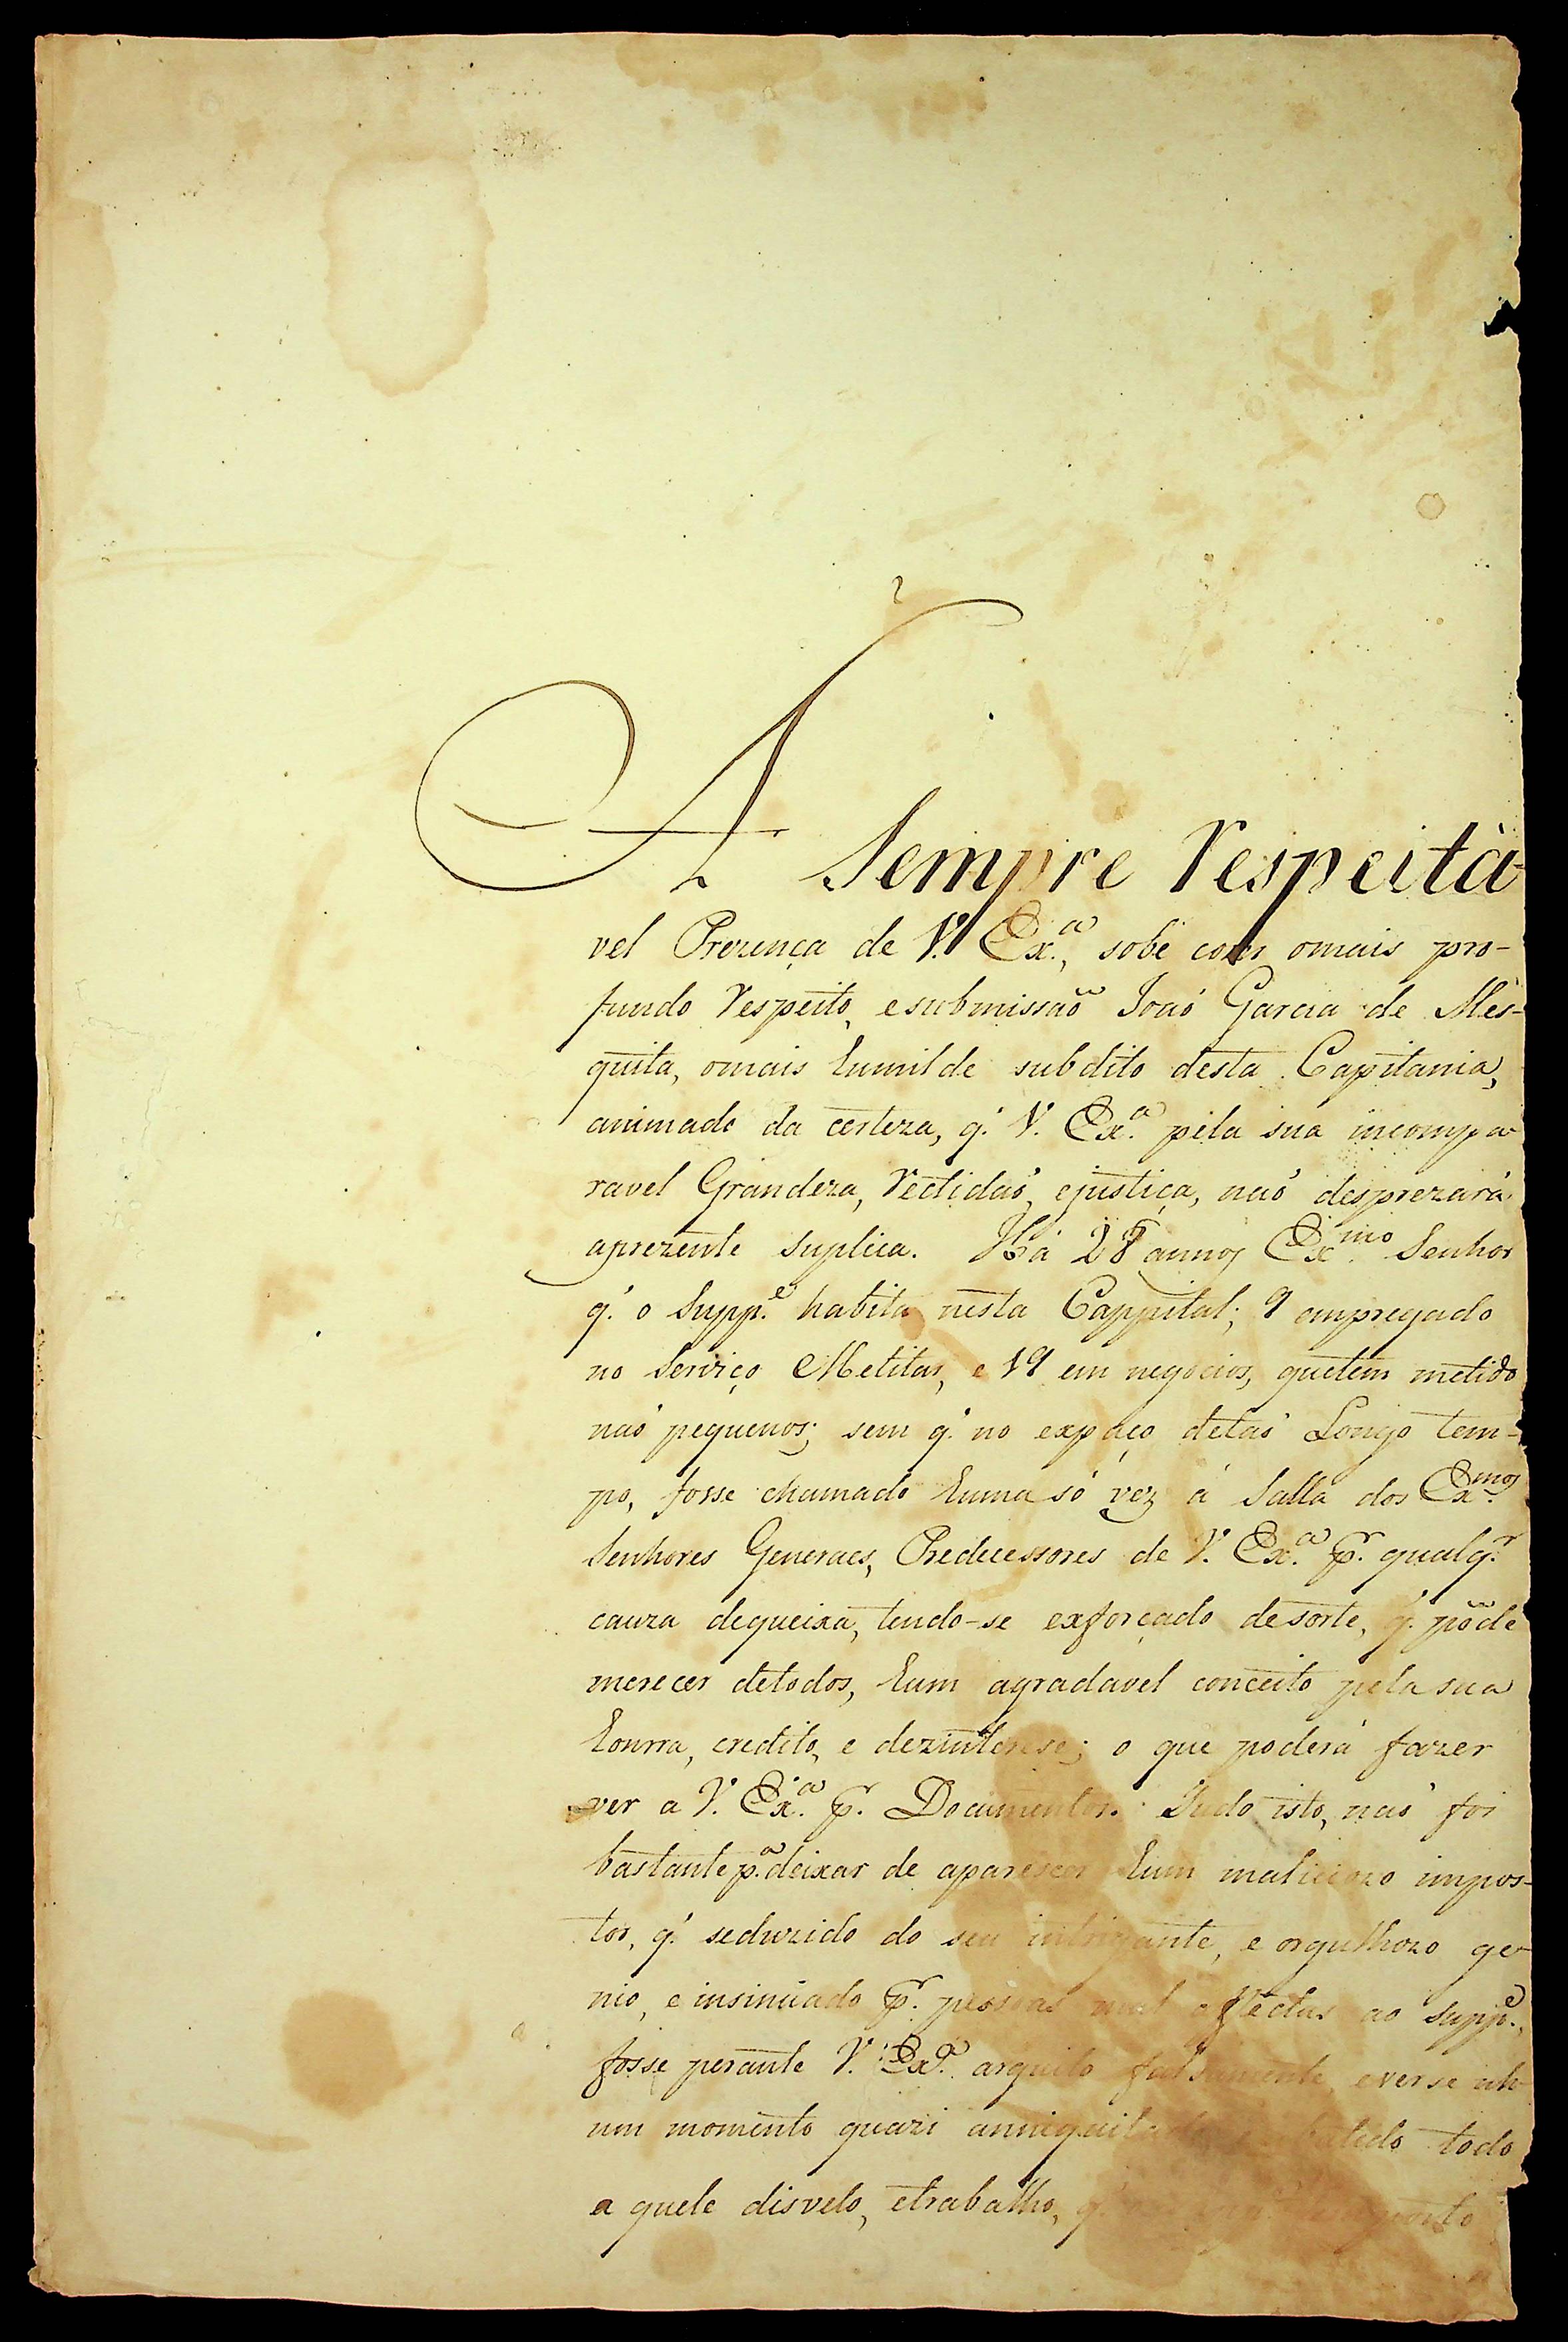 A Sempre respeità-
vel Prezença de V. Ex.ª, sobe com omais pro-
fundo respeito, esubmissaõ Joaõ Garcia de Mes-
quita, omais humilde subdito desta Capitania,
animado da certeza, q.' V. Ex.ª pela sua incompa-
ravel Grandeza, rectidaõ, ejustiça, naõ desprezará
aprezente suplica. Há 28 annos Ex.mo Senhor
q.' o Supp.e habita nesta Cappital; 9 empregado
no Serviço Melitar, e 19 em negocios, quetem metido
naõ pequenos; sem q.' no expaço detaõ Longo tem-
po, fosse chamado huma só vez á Salla dos Ex.mos
Senhores Generaes, Predecessores de V. Ex.ª p.r qualq.r
cauza dequeixa, tendo-se exforçado desorte, q.' põde
merecer detodos, hum agradavel conceito pela sua
honrra, credito, e dezinterese; o que poderá fazer
ver a V. Ex.ª p.r Documentos. Tudo isto, naõ foi
bastante p.ª deixar de aparescer hum maliciozo impos-
tor, q.' seduzido do seu intrigante, e orgulhozo ge-
nio, e insinuado p.r pessoas mal affectas ao Supp.e,
fosse perante V. Ex.ª arguito falsamente, everse
um momento quazi anniquilado todo
a quele disvelo, etrabalho,